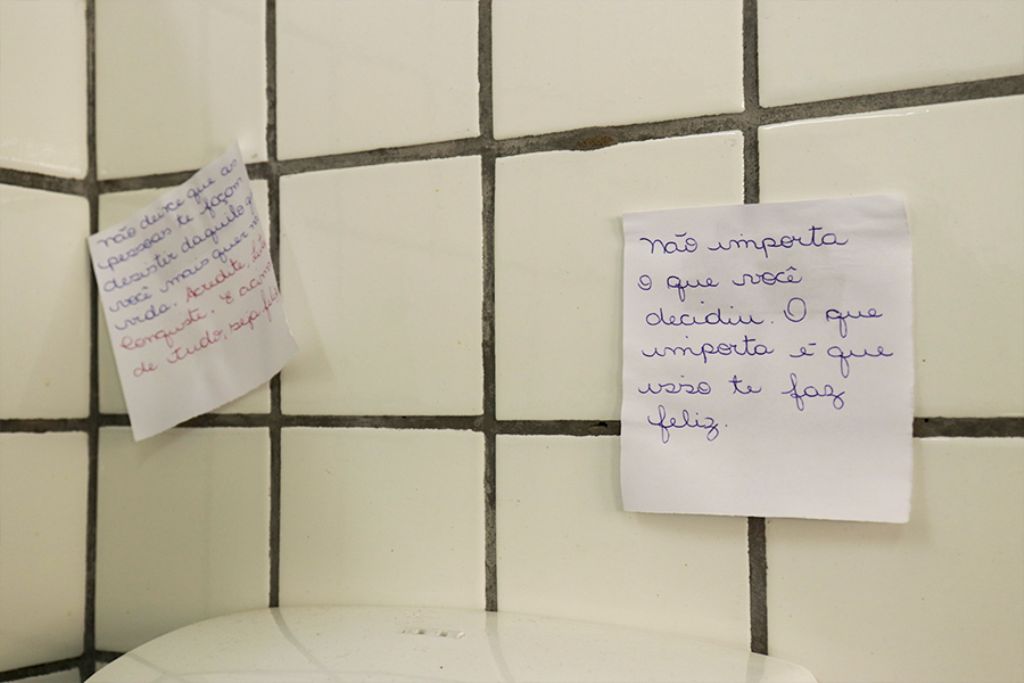 não deixe que as
pessoas te façam
desistir daquilo q
você mais quer na
vida. Acredite, lute
Conquiste. E acima
de tudo, seja feliz
não importa
o que você
decidiu. O que
importa é que
isso te faz
feliz.